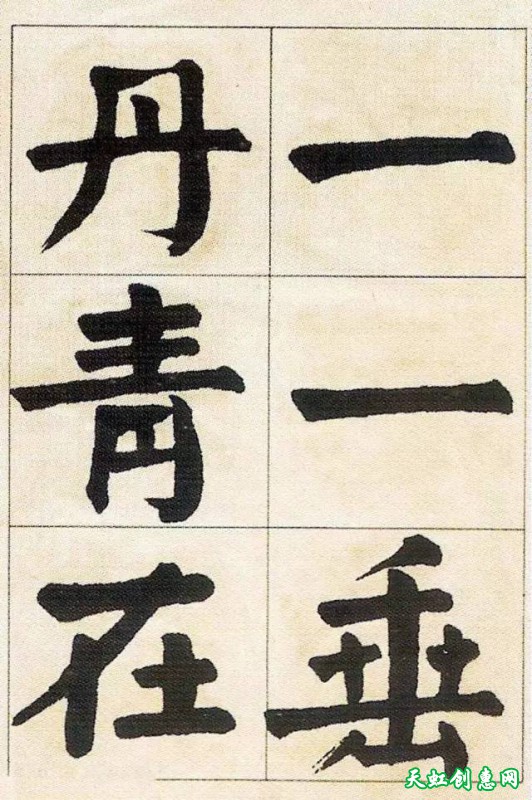 一一垂
丹青在
天虹创惠网